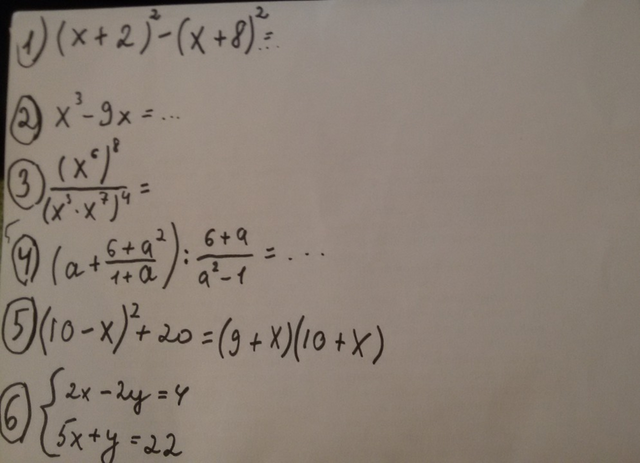 1) (x+2)²-(x+8)²=...
2) x³-9x=...
3) (x⁶)⁸/(x³·x⁷)⁴=
4) (a+(6+a²)/(1+a)):(6+a)/(a²-1)=...
5) (10-x)²+20=(9+x)(10+x)
6) {2x-2y=4
5x+y=22